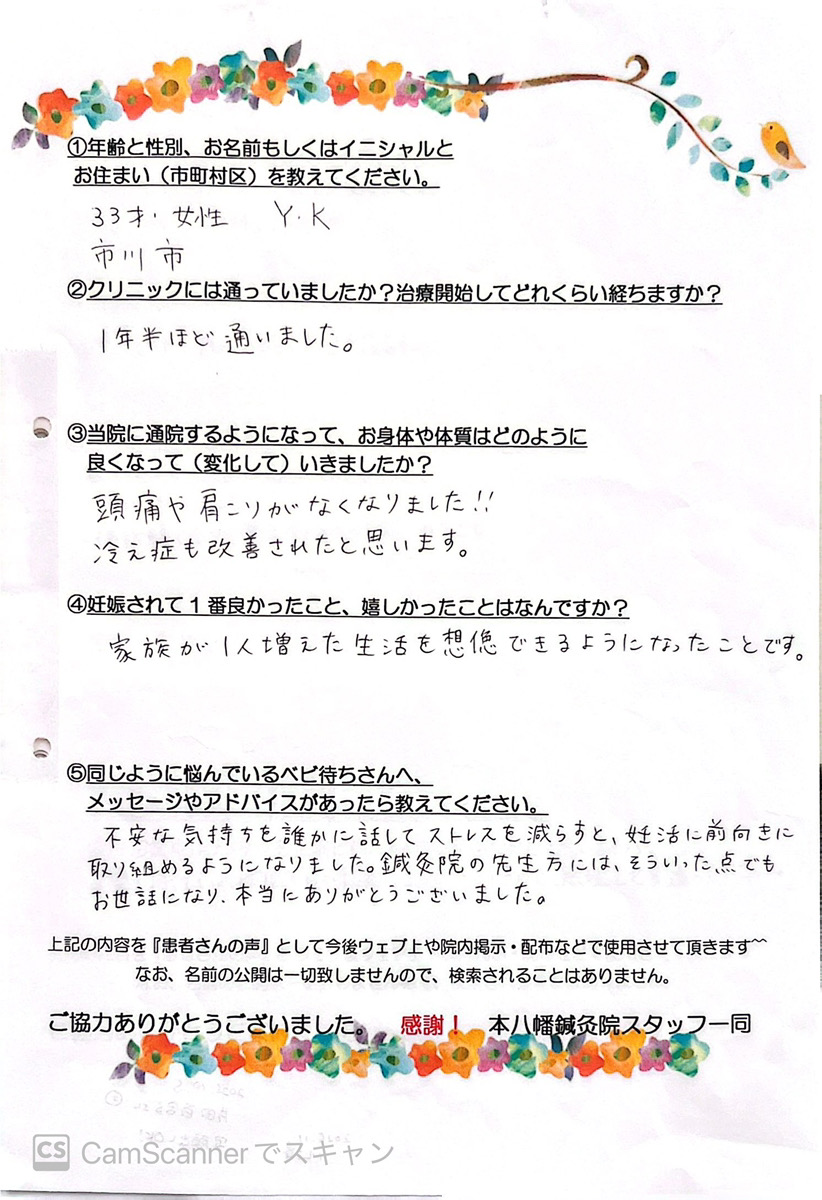 ①年齢と性別、お名前もしくはイニシャルと
お住まい（市町村区）を教えてください。
33才・女性　Y.K
市川市
②クリニックには通っていましたか？治療開始してどれくらい経ちますか？
1年半ほど通いました。
③当院に通院するようになって、お身体や体質はどのように
良くなって（変化して）いきましたか？
頭痛や肩こりがなくなりました!!
冷え症も改善されたと思います。
④妊娠されて１番良かったこと、嬉しかったことはなんですか？
家族が1人増えた生活を想像できるようになったことです。
⑤同じように悩んでいるベビ待ちさんへ、
メッセージやアドバイスがあったら教えてください。
不安な気持ちを誰かに話してストレスを減らすと、妊活に前向きに
取り組めるようになりました。鍼灸院の先生方には、そういった点でも
お世話になり、本当にありがとうございました。
上記の内容を『患者さんの声』として今後ウェブ上や院内掲示・配布などで使用させて頂きます^^
なお、名前の公開は一切致しませんので、検索されることはありません。
ご協力ありがとうございました。　感謝！　本八幡鍼灸院スタッフ一同
CS CamScannerでスキャン